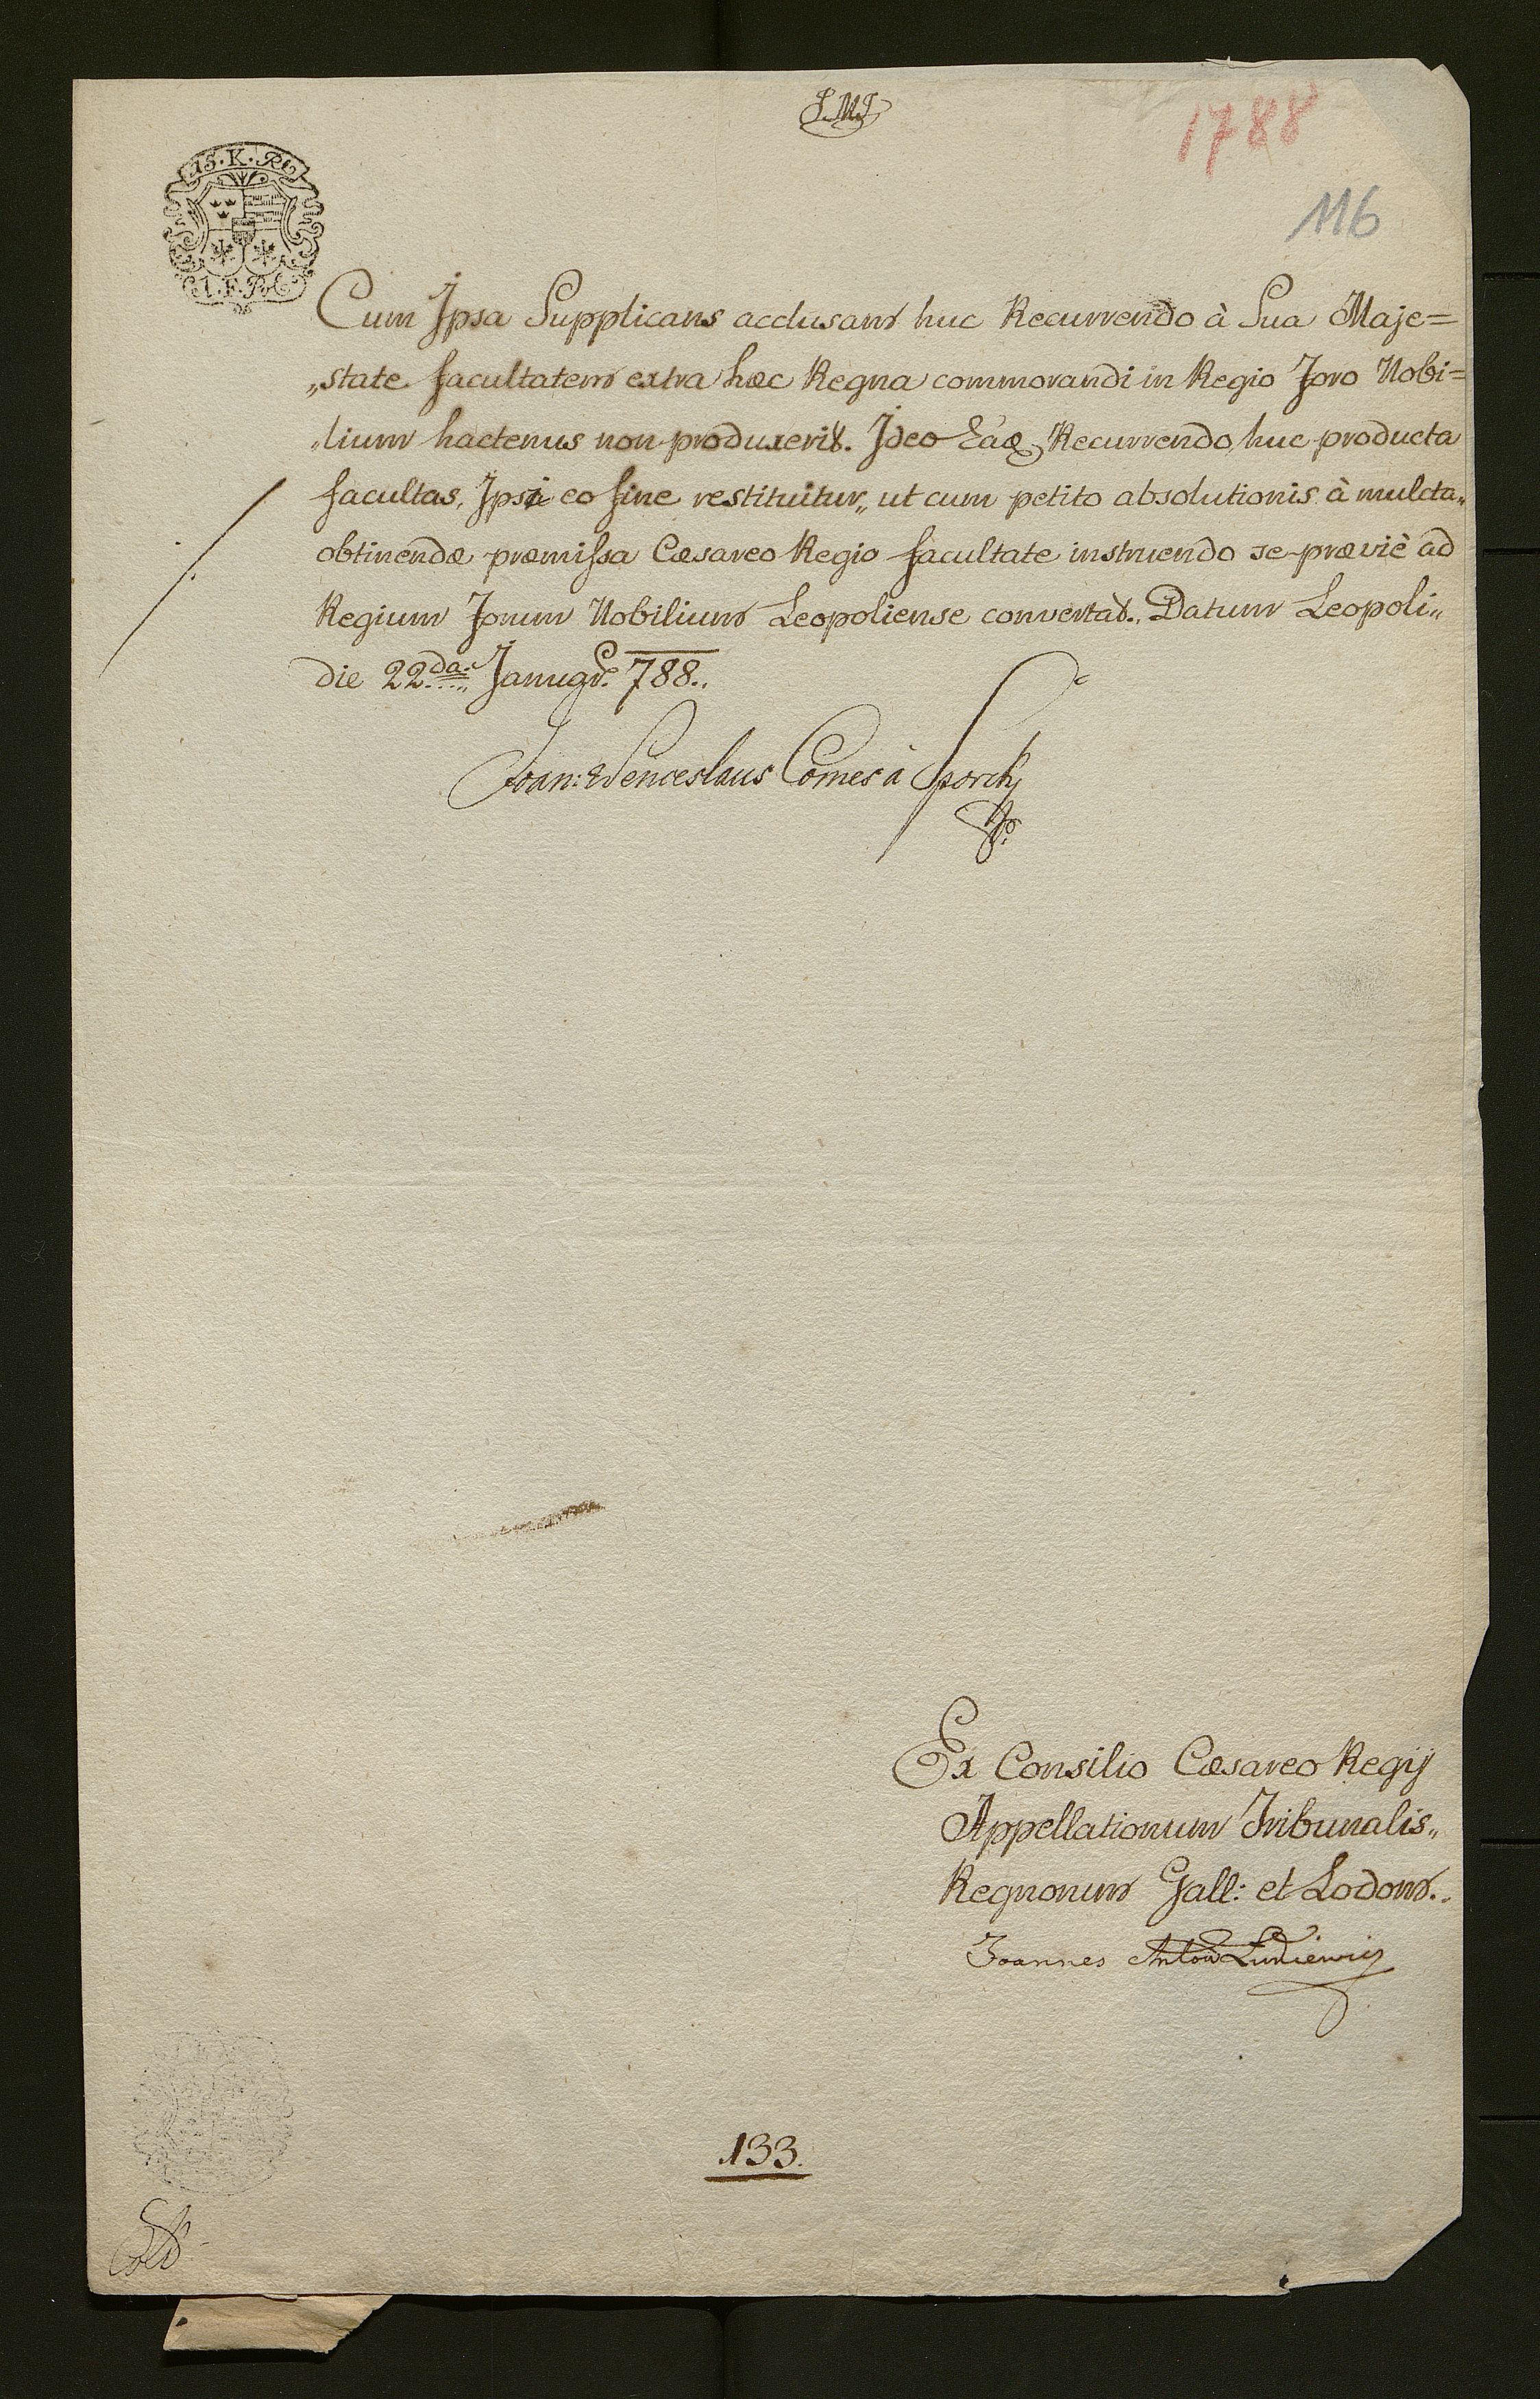 J.M.J
1788
116
15. K. R
1. F. R
Cum Ipsa Supplicans acclusam huc Recurrendo à Sua Maje=
„state facultatem extra hæc Regna commorandi in Regio Foro Nobi=
„lium hactenus non produxerit. Ideo Recurrendo huc producta
facultas, Ipsi eo fine restituitur„ ut cum petito absolutionis à mulcta„
obtinendæ præmissa Cæsareo Regio facultate instruendo se præviè ad
Regium Forum Nobilium Leopoliense convertat. Datum Leopoli„
die 22.da Januar. 788.
Joan: Wenceslaus Comes à Sporck
Ex Consilio Cæsareo Regij
Appellationum Tribunalis„
Regnorum Gall: et Lodom.
Joannes
133.